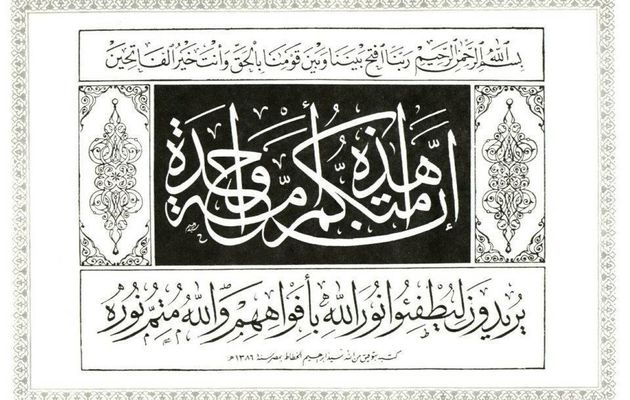 بسم الله الرحمن الرحيم ربنا افتح بيننا وبين قومنا بالحق وأنت خير الفاتحين
إن هذه أمتكم أمة واحدة
يريدون ليطفئوا نور الله بأفواههم والله متم نوره
كتبه بتوفيق من الله سيد إبراهيم الخطاط بمصر سنة ١٣٨٦ هـ